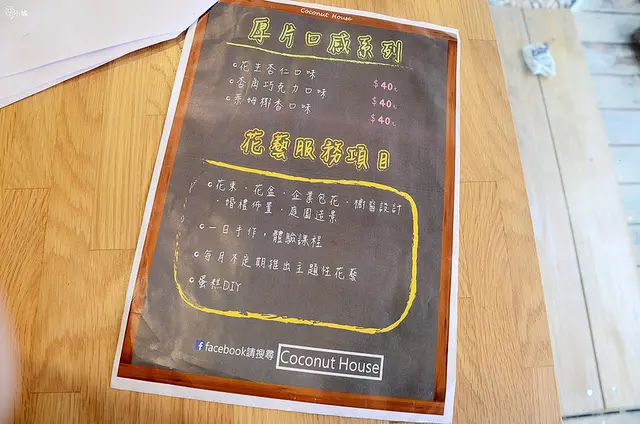 Coconut House
厚片口感系列
花生杏仁口味 $40元
杏角巧克力口味 $40元
萊姆椰香口味 $40元
花藝服務項目
花束、花盒、企業包花、櫥窗設計
、婚禮佈置、庭園造景
一日手作，體驗課程
每月不定期推出主題性花藝
蛋糕DIY
facebook請搜尋 Coconut House